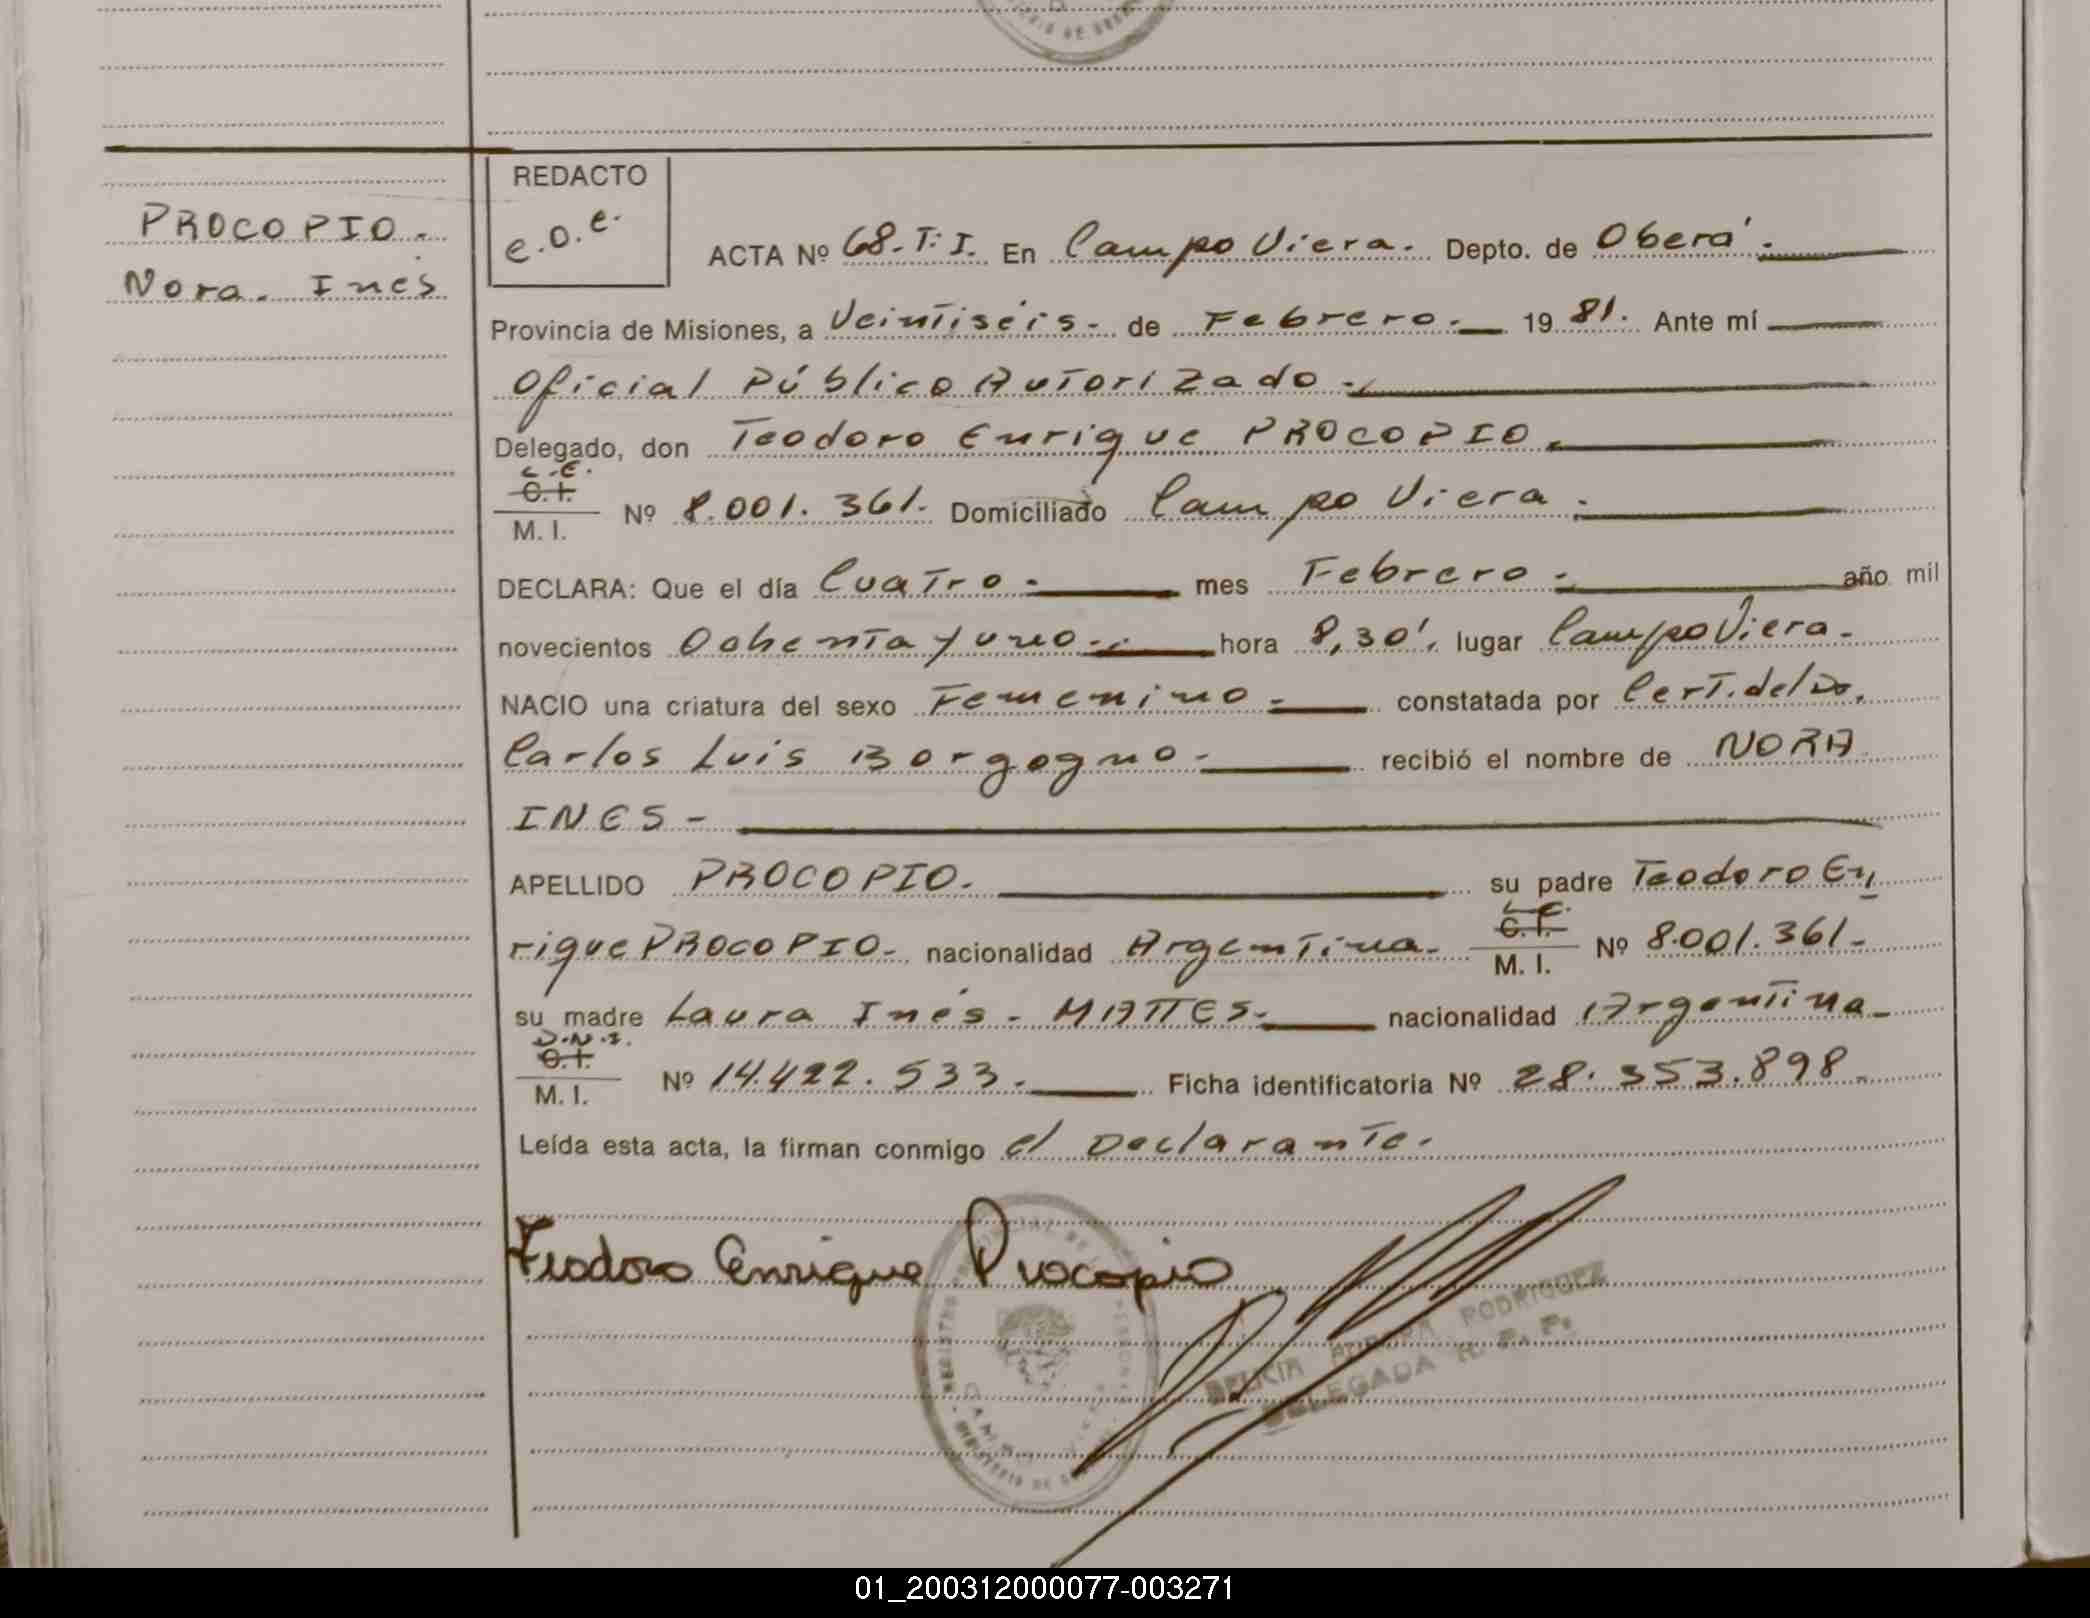 PROCOPIO.
Nora. Inés
REDACTO
e.o.e.
ACTA Nº 68.T:I. En Campo Viera. Depto. de Oberá.
Provincia de Misiones, a Veintiséis- de Febrero. 19 81. Ante mí
Oficial Público Autorizado.-
Delegado, don Teodoro Enrique PROCOPIO.
L.E.
C.I.
M. I. Nº 8.001.361. Domiciliado Campo Viera.
DECLARA: Que el día Cuatro.- mes Febrero.- año mil
novecientos Ochenta y uno.- hora 8,30'. lugar Campo Viera.-
NACIO una criatura del sexo Femenino.- constatada por Cert. del Dr.
Carlos Luis Borgogno.- recibió el nombre de NORA
INES-
APELLIDO PROCOPIO. su padre Teodoro En
rique PROCOPIO.- nacionalidad Argentina.-
L.E.
C.I.
M. I. Nº 8.001.361-
su madre Laura Inés- MATTES.- nacionalidad Argentina-
D.N.I.
C.I.
M. I. Nº 14.422.533.- Ficha identificatoria Nº 28.353.898-
Leída esta acta, la firman conmigo el Declarante.
Teodoro Enrique Procopio
RODRIGUEZ
DELEGADA R. P. P.
01_200312000077-003271